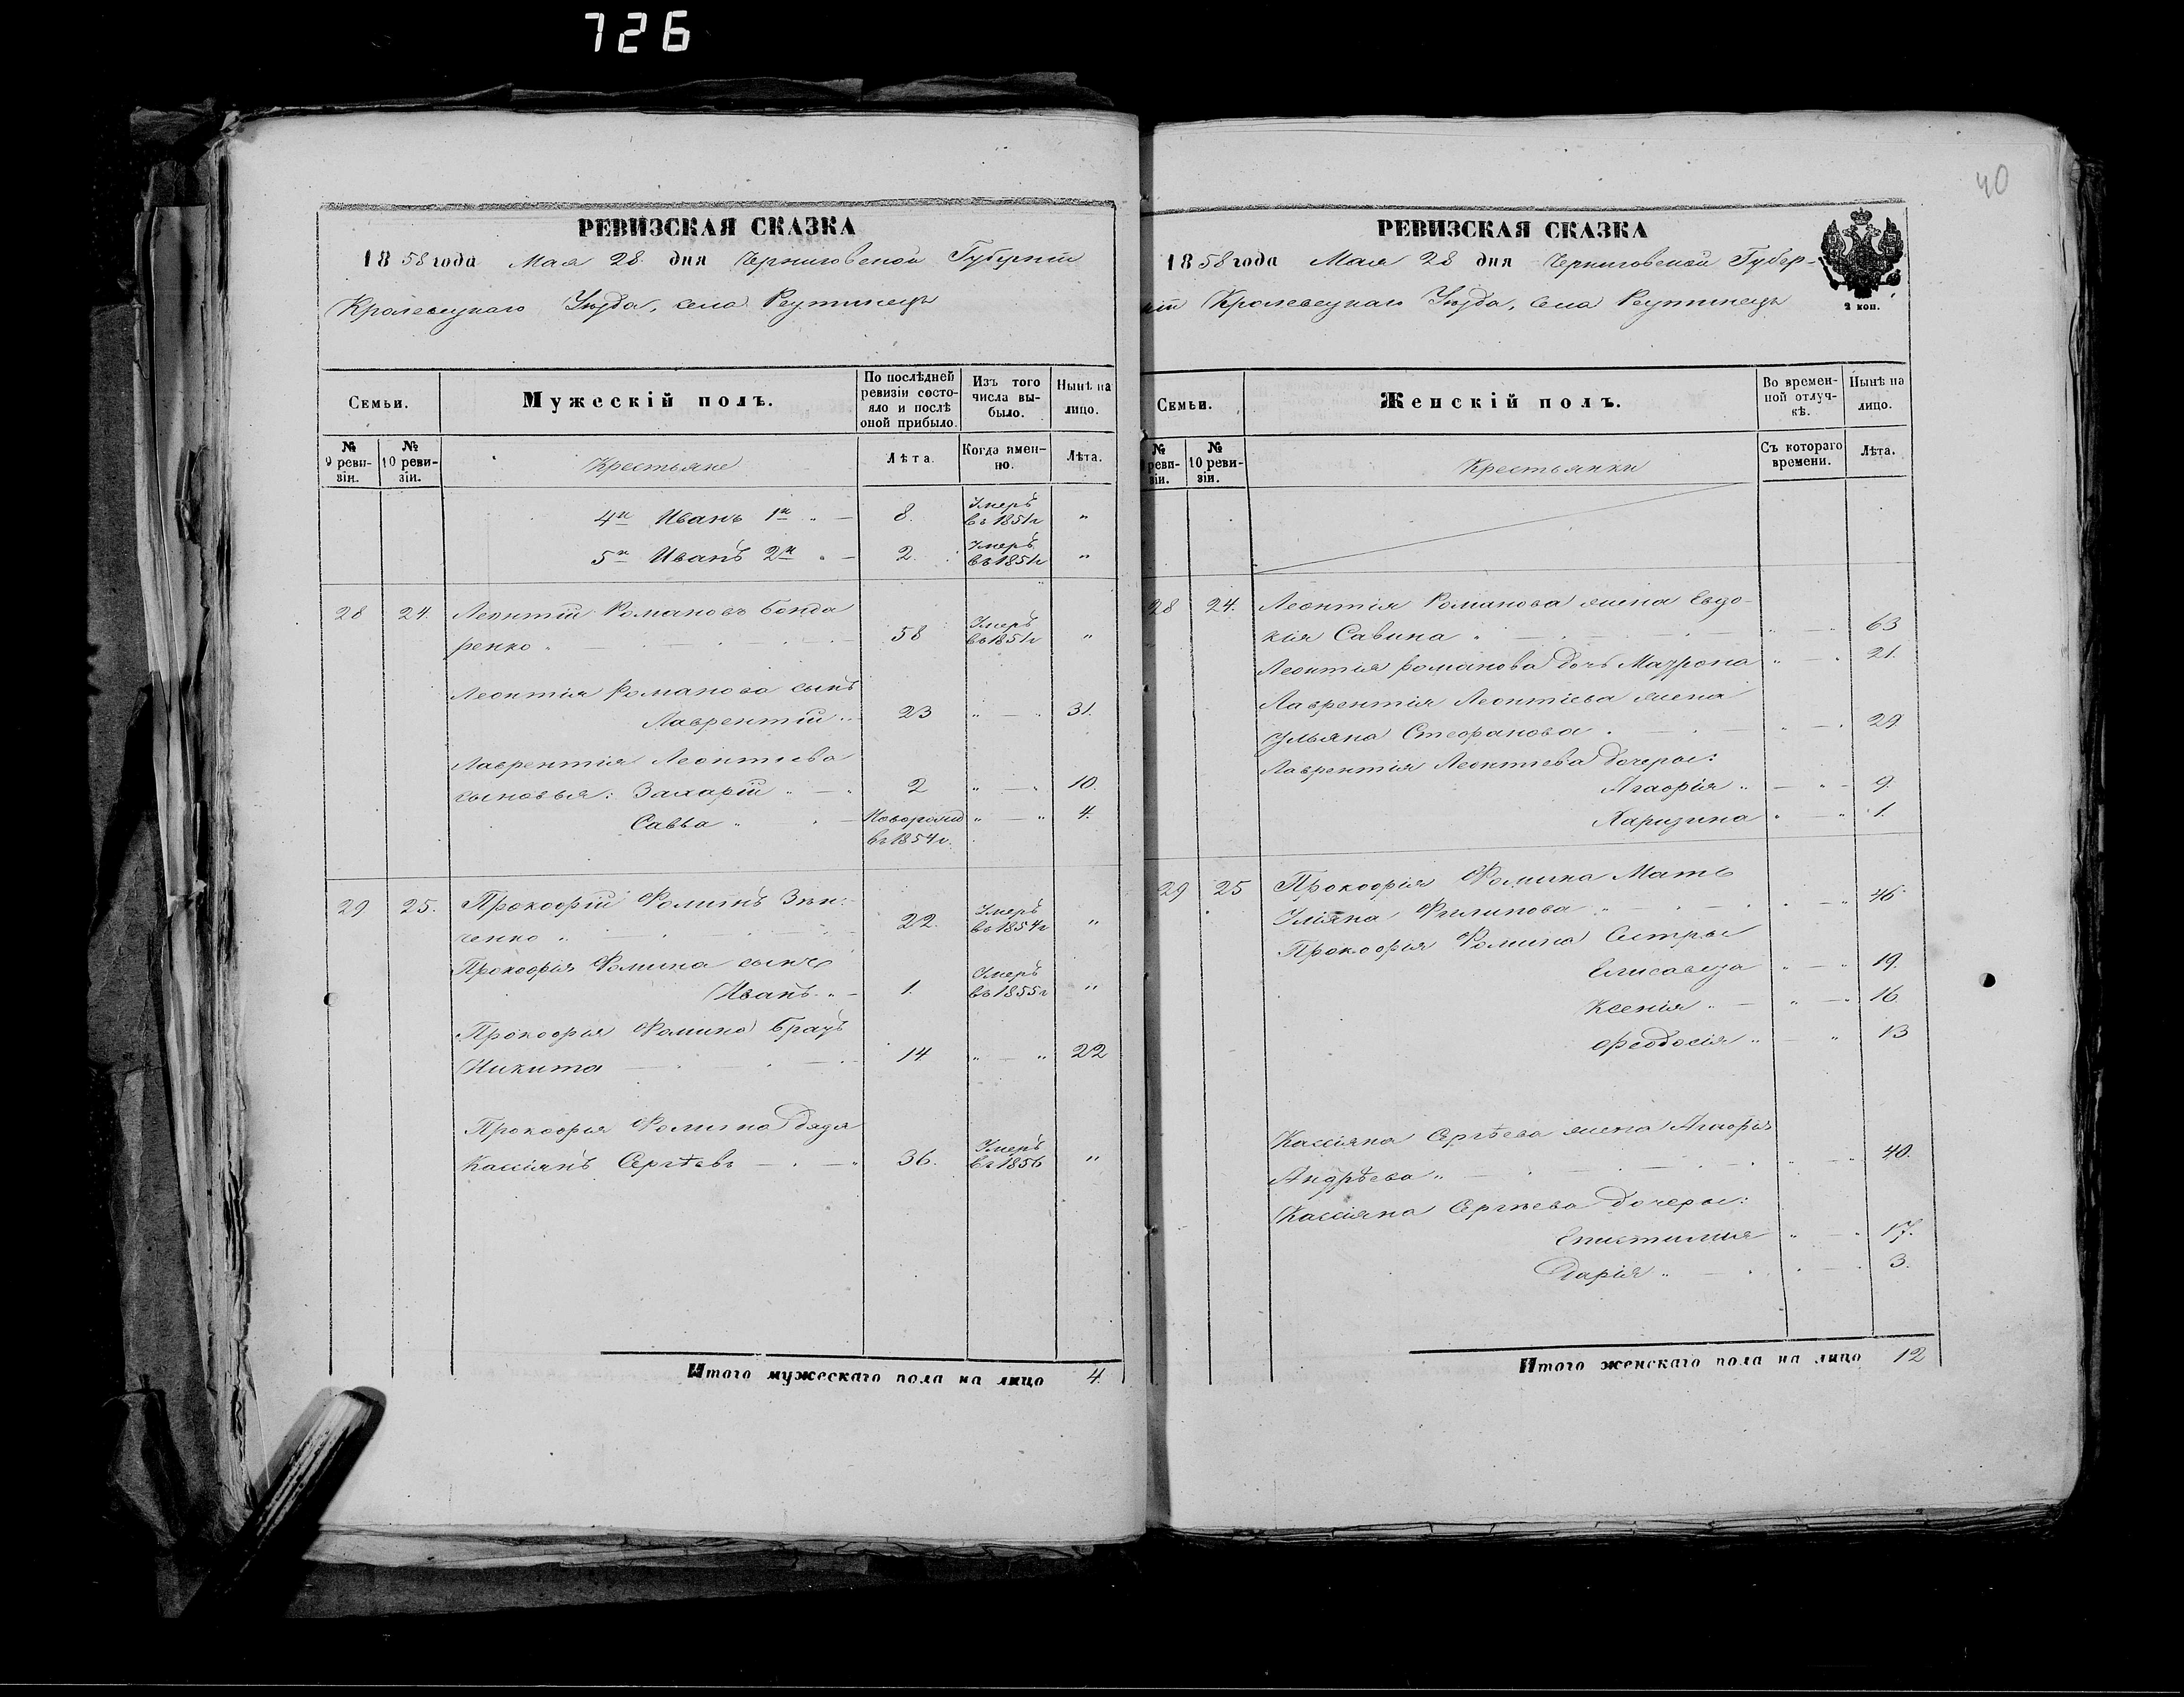 726
40
РЕВИЗСКАЯ СКАЗКА
1858 года Мая 28 дня Черниговской Губерніи
Кролевецкаго Уѣзда, села Реутинецъ
Семьи.
Мужескій полъ.
По послѣдней ревизіи состояло и послѣ оной прибыло.
Изъ того числа выбыло.
Нынѣ на лицо.
№ 9 ревизіи.
№ 10 ревизіи.
Крестьяне
Лѣта.
Когда именно.
Лѣта.
4й Иванъ 1й " — 8. Умеръ въ 1851г "
5й Иванъ 2й " — 2. Умеръ въ 1851г "
28 24. Леонтій Романовъ Бонда
ренко " — 58 Умеръ въ 1851г "
Леонтія Романова сынъ
Лаврентій " 23 " — " 31.
Лаврентія Леонтіева
сыновья: Захарій " — " 2 " — " 10.
Савва " — Новорожд " — " 4.
въ 1854г.
29 25. Прокофій Фоминъ Зѣн-
ченко " — 22. Умеръ въ 1854г "
Прокофія Фомина сынъ
Иванъ " — 1. Умеръ въ 1855г "
Прокофія Фомина Братъ
Никита — 14 " — " 22
Прокофія Фомина Дядя
Кассіянъ Сергѣевъ — " — " 36. Умеръ въ 1856 "
Итого мужескаго пола на лицо 4.
РЕВИЗСКАЯ СКАЗКА
1858 года Мая 28 дня Черниговской Губер-
ніи Кролевецкаго Уѣзда, Села Реутинецъ
2 коп.
Семьи.
Женскій полъ.
Во временной отлучкѣ.
Нынѣ на лицо.
№ ревизіи.
№ 10 ревизіи.
Крестьянки
Съ котораго времени.
Лѣта.
28 24. Леонтія Романова жена Евдо-
кія Савина " — " — " 63
Леонтія Романова дочь Матрона " — " 21.
Лаврентія Леонтіева жена
Ульяна Стефанова " — " — " 29
Лаврентія Леонтіева дочери:
Агафія " — " — 9.
Харитина " — " 1.
29 25 Прокофія Фомина Мать
Уліяна Филипова " — " — " 46
Прокофія Фомина Сестры
Елисавета " — " 19.
Ксенія " — " — " 16.
Феодосія " — " 13
Кассіяна Сергѣева жена Агафія
Андрѣева " — " — " 40.
Кассіяна Сергѣева дочери:
Епистимія " — " 17.
Дарія " — " — " 3.
Итого женскаго пола на лицо 12